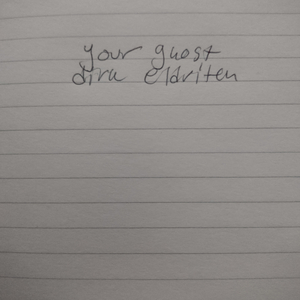 your guest
dira eldriten